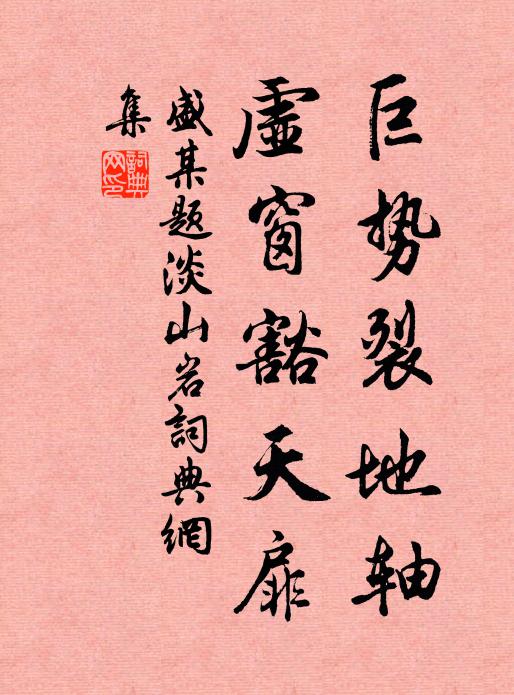 巨势裂地轴
虚窗豁天扉
盛某题淡山岩詞典網
集
詞典
网印